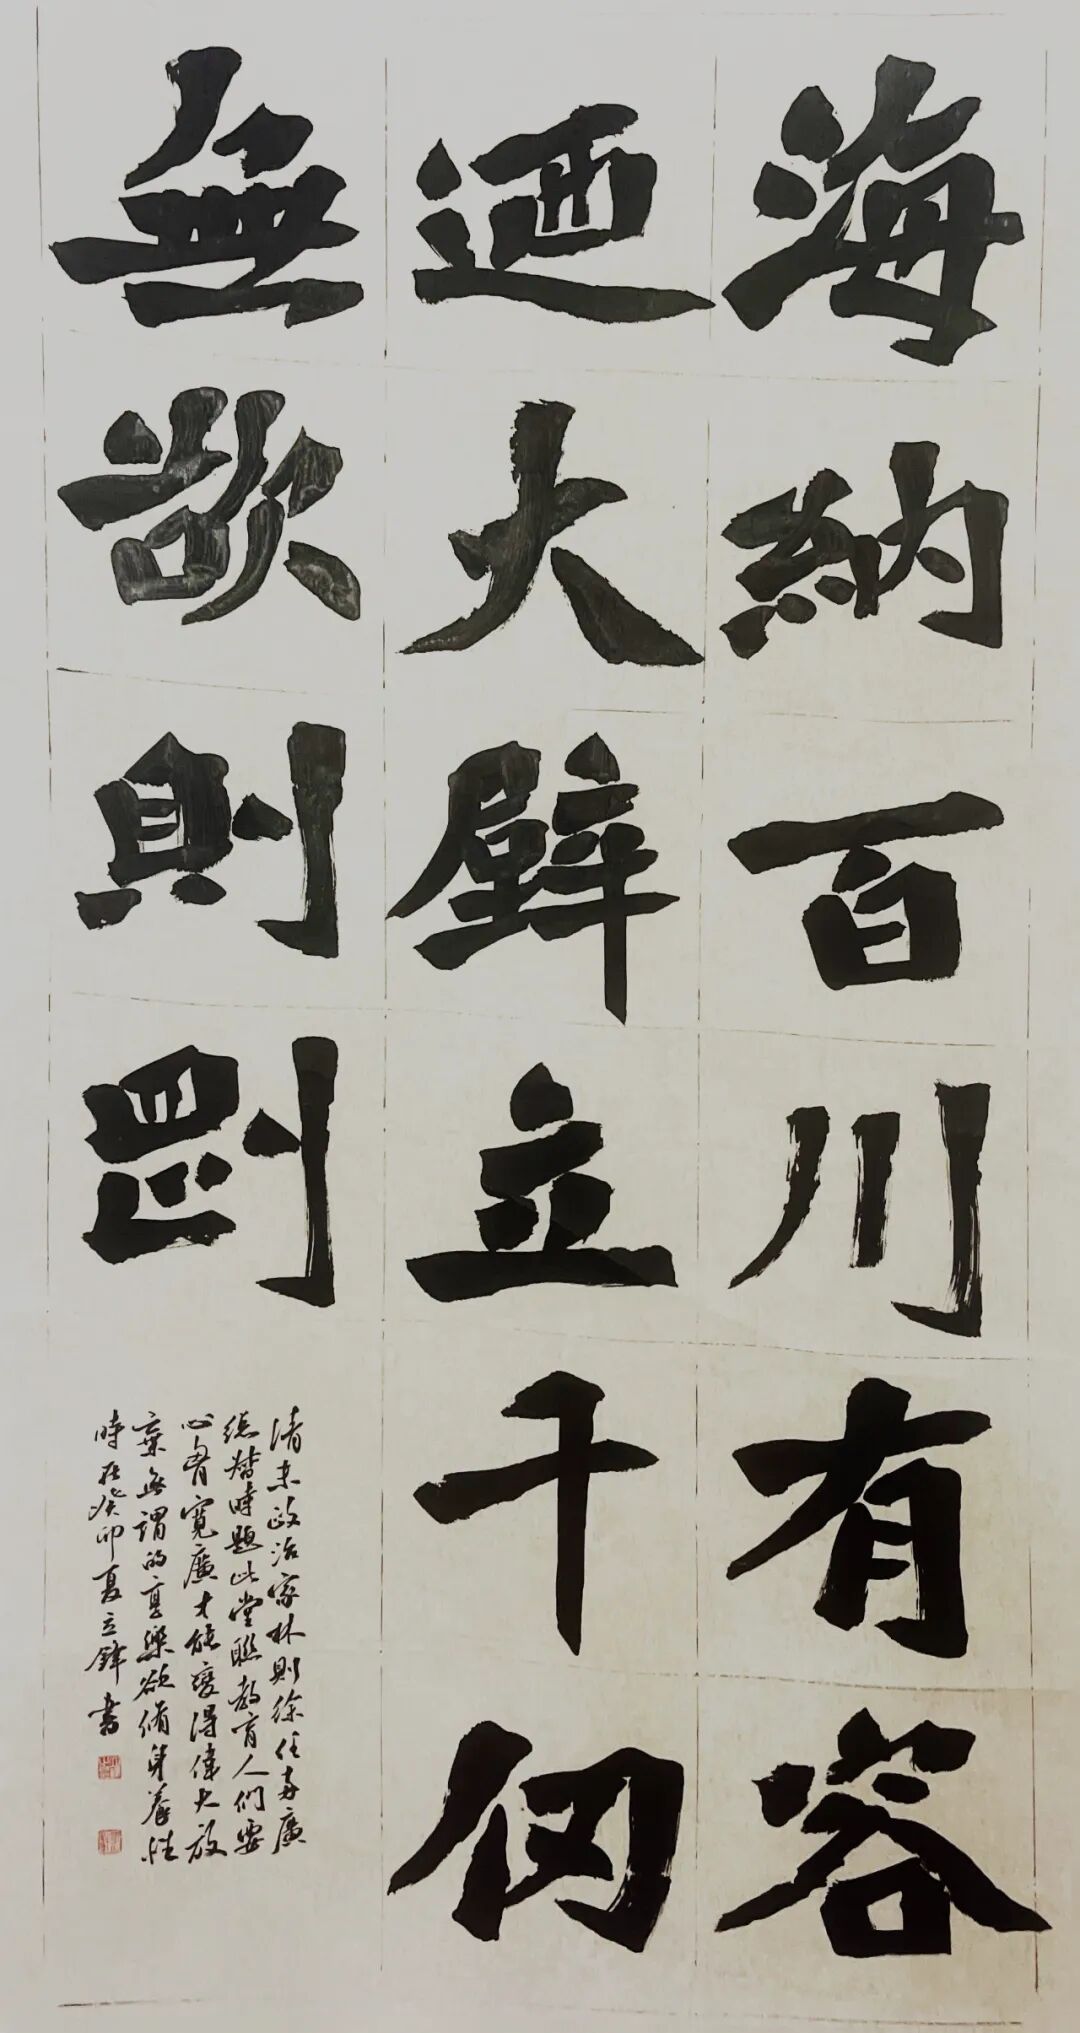 海納百川有容
迺大壁立千仞
無欲則剛
清末政治家林則徐任两廣
總督時題此堂聯教育人們要
心胷寬廣才能變得偉大放
棄無謂的享樂欲脩身養性
時在癸卯夏立鋒書